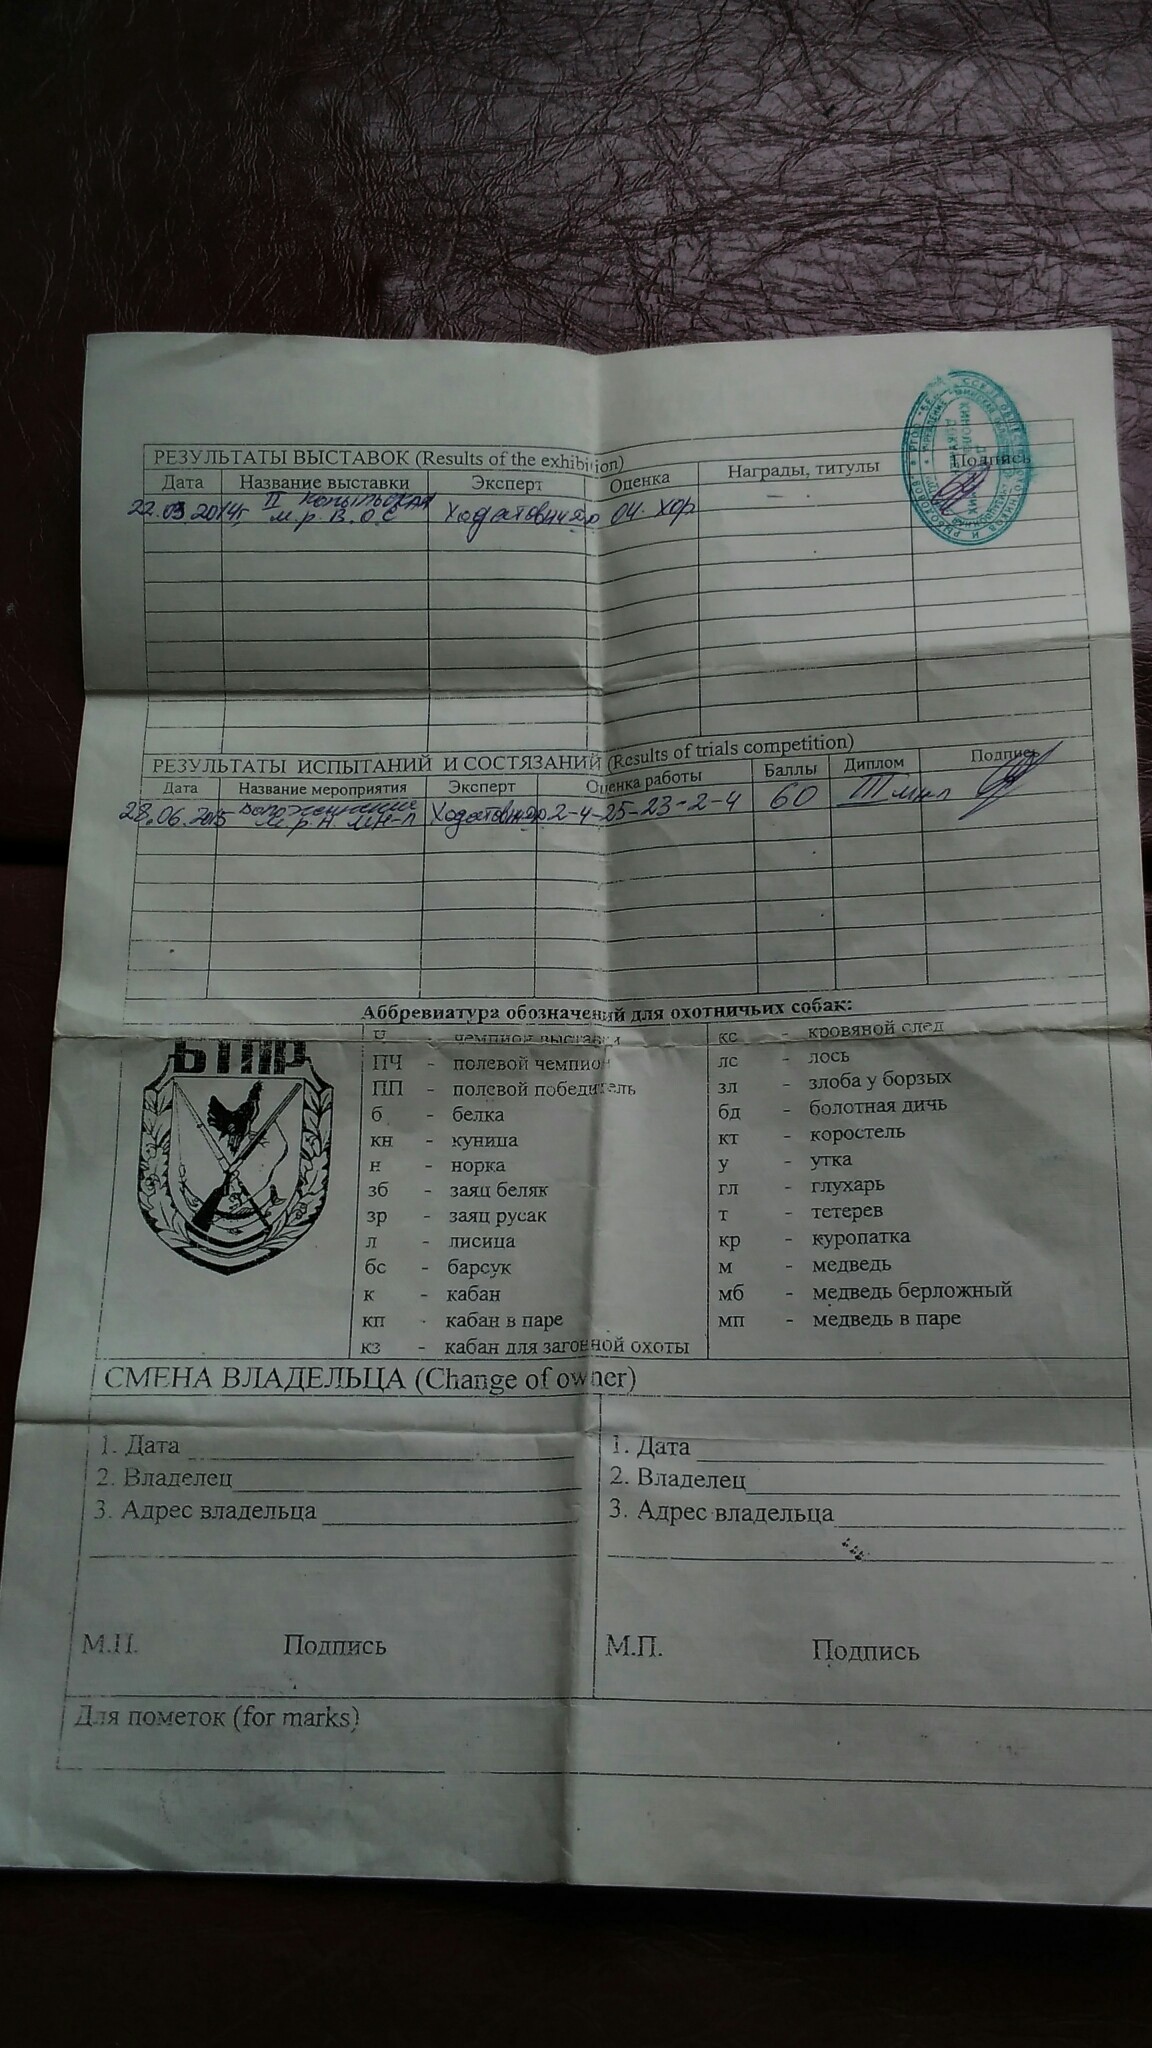 РЕЗУЛЬТАТЫ ВЫСТАВОК (Results of the exhibition)
Дата Название выставки Эксперт Оценка Награды, титулы Подпись
22.03.2014г II Копыльская Ходатович оч. хор —
м.р. В.О.С
РЕЗУЛЬТАТЫ ИСПЫТАНИЙ И СОСТЯЗАНИЙ (Results of trials competition)
Дата Название мероприятия Эксперт Оценка работы Баллы Диплом Подпись
28.06.2015 2-4-25-23-2-4 60 III
Аббревиатура обозначений для охотничьих собак:
Ч - чемпион выставки
ПЧ - полевой чемпион
ПП - полевой победитель
б - белка
кн - куница
н - норка
зб - заяц беляк
зр - заяц русак
л - лисица
бс - барсук
к - кабан
кп - кабан в паре
кз - кабан для загонной охоты
кс - кровяной след
лс - лось
зл - злоба у борзых
бд - болотная дичь
кт - коростель
у - утка
гл - глухарь
т - тетерев
кр - куропатка
м - медведь
мб - медведь берложный
мп - медведь в паре
СМЕНА ВЛАДЕЛЬЦА (Change of owner)
1. Дата
2. Владелец
3. Адрес владельца
М.П. Подпись
1. Дата
2. Владелец
3. Адрес владельца
М.П. Подпись
Для пометок (for marks)